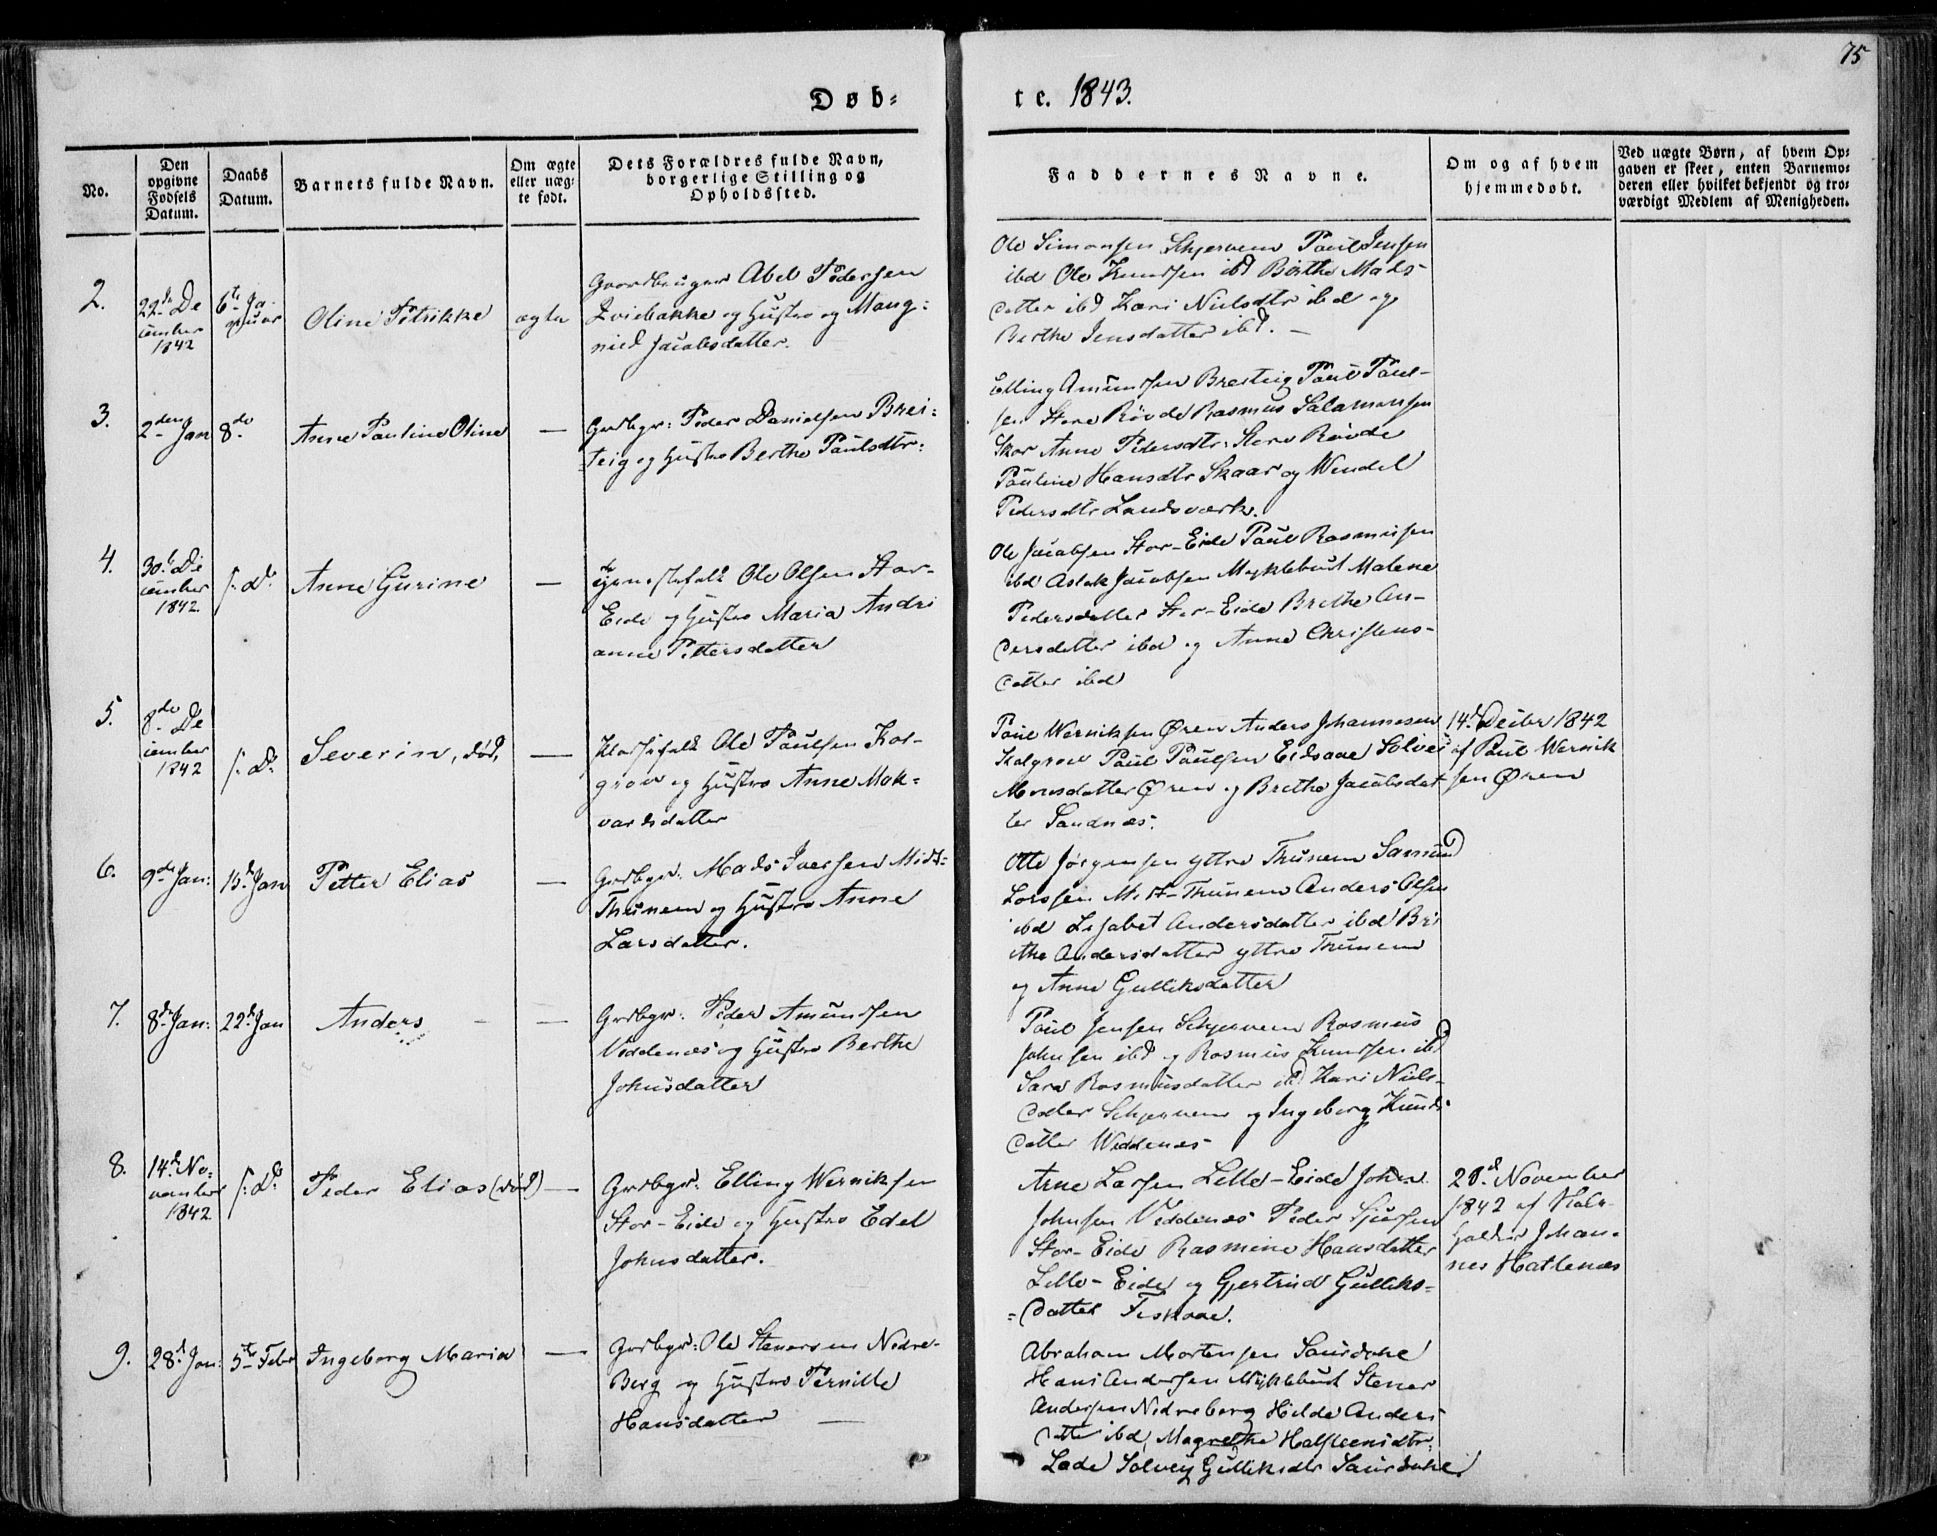 75
Døb-
te. 1843.
No.
Den opgivne Fødsels Datum.
Daabs Datum.
Barnets fulde Navn.
Om ægte eller uægte født.
Dets Forældres fulde Navn, borgerlige Stilling og Opholdssted.
Faddernes Navne.
Om og af hvem hjemmedøbt.
Ved uægte Børn, af hvem Op-
gaven er skeet, enten Barnemo-
deren eller hvilket bekjendt og tro-
værdigt Medlem af Menigheden.
2.
22de De
cember
1842
6te Ja-
nuar
Oline Petrikke
ægte
Gaardbruger Abel Pedersen
Hustro og Mang-
nild Jacobsdatter.
Ole Simonsen Skjerven Paul Jensen
ibd Ole Knudsen ibd Birthe Mads-
datter ibd Kari Nielsdtr ibd og
Berthe Jensdatter ibd. —
3.
2den Jan
8de
Anne Pauline Oline
—
Grdbgr: Peder Danielsen Brei-
teig og Hustro Berthe Paulsdtr.
Elling Amundsen Breiteig Paul Paul-
sen Store Røvde Rasmus Salamonsen
Skor Anne Pedersdtr: Store Røvde
Pauline Hansdtr Skaar og Wendel
Pedersdtr Landsværk.
4.
30te De
cember
1842
s. D.
Anne Gurine
—
Tjenestefolk Ole Olsen Stor-
Eide og Hustro Maria Andri
anne Pettersdatter
Ole Jacobsen Stor-Eide Paul Rasmussen
ibd Aslak Jacobsen Myklebust Malene
Pedersdatter Stor-Eide Brethe An-
dersdatter ibd og Anne Christens-
datter ibd
5.
8de De
cember
1842
s. D.
Severin, død,
—
Ole Paulsen Kol-
grov og Hustro Anne Mak-
vardsdatter
Paul Werniksen Øren Anders Johannesen
Kolgrov Paul Paulsen Eidsaae Solvei
Monsdatter Øren og Brethe Jacobsdat
ter Sandnæs.
14de Decbr 1842
af Paul Wernik
sen Øren
6.
9de Jan:
15de Jan
Petter Elias
—
Grdbgr: Mads Iversen Midt-
Thunem og Hustro Anne
Larsdatter.
Otte Jørgensen yttre Thunem Samund
Larssen Midt-Thunem Anders Olsen
ibd Lisabet Andersdatter ibd Bri
the Andersdatter yttre Thunem
og Anne Gulliksdatter
7.
8de Jan:
22de Jan
Anders —
—
Grdbgr: Peder Amundsen
Viddenæs og Hustro Berthe
Johnsdatter
Paul Jensen Schjerven Rasmus
Johnsen ibd og Rasmus Knudsen ibd
Sara Rasmusdatter ibd Kari Niels-
datter Schjerven og Ingeborg Knuds
datter Widdenæs
8.
14de No-
vember
1842
s. D.
Peder Elias (død)
—
Grdbgr: Elling Werniksen
Stor-Eide og Hustro Edel
Johnsdatter.
Arne Larsen Lille-Eide John
Johnsen Viddenæs Peder Sjursen
Stor-Eide Rasmine Hansdatter
Lille-Eide og Gjertrud Gulliks-
datter Fiskaae.
20de November
1842 af
Johan-
nes Hatlenæs
9.
28de Jan:
5te Febr
Ingeborg Maria
—
Grdbgr: Ole Stenersen Nedre-
Berg og Hustro Pernille
Hansdatter —
Abraham Mortensen
Hans Andersen Myklebust Stener
Andersen Nedreberg Hilde Anders
datter ibd, Magrethe Halsteensdtr:
Lade Solvey Gulliksdtr